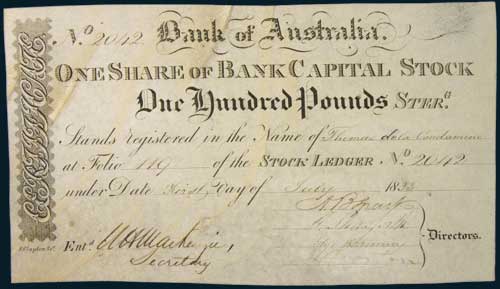 No. 2042 Bank of Australia.
ONE SHARE OF BANK CAPITAL STOCK
One Hundred Pounds STERG.
Stands registered in the Name of Thomas de la Condamine
at Folio 119 of the STOCK LEDGER No. 2042
under Date First Day of July 183
CERTIFICATE
Entd.
Secretary
Directors.